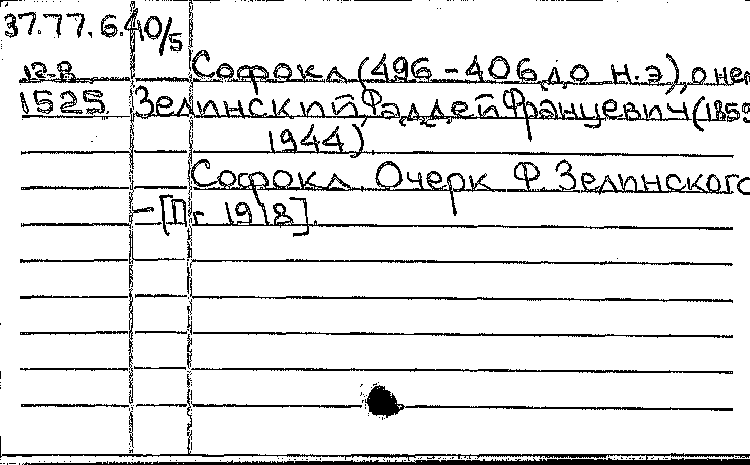 37.77.6.40/5
12-8 Софокл (496-406 до н.э), о нем
1525. Зелинский, Фаддей Францевич (1859
1944).
Софокл. Очерк Ф. Зелинского
-[П. 1918].